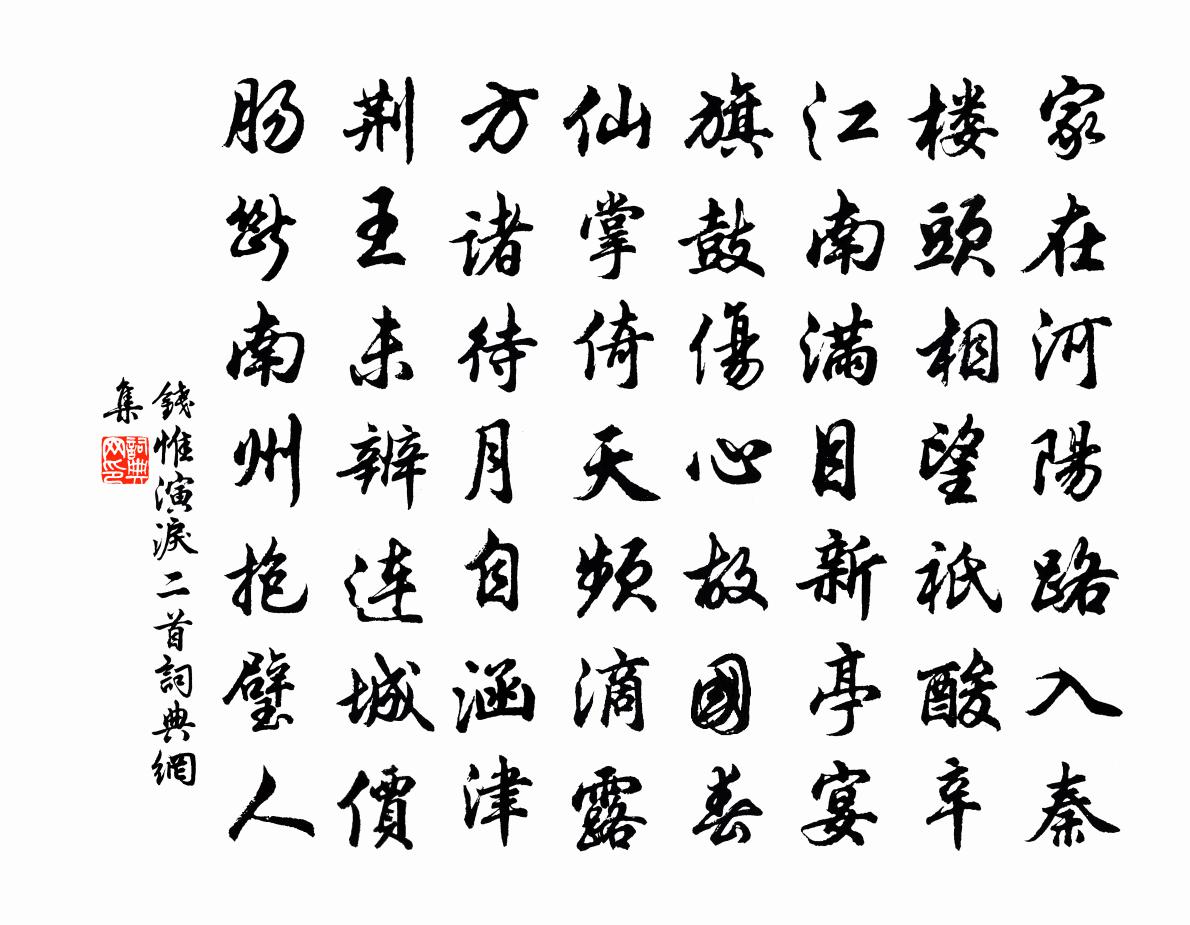 家在河陽路入秦
楼頭相望祇酸辛
江南滿目新亭宴
旗鼓傷心故國春
仙掌倚天頻滴露
方諸待月自涵津
荆王未辨連城價
腸斷南州抱璧人
錢惟演淚二首詞典網
集
詞典網印